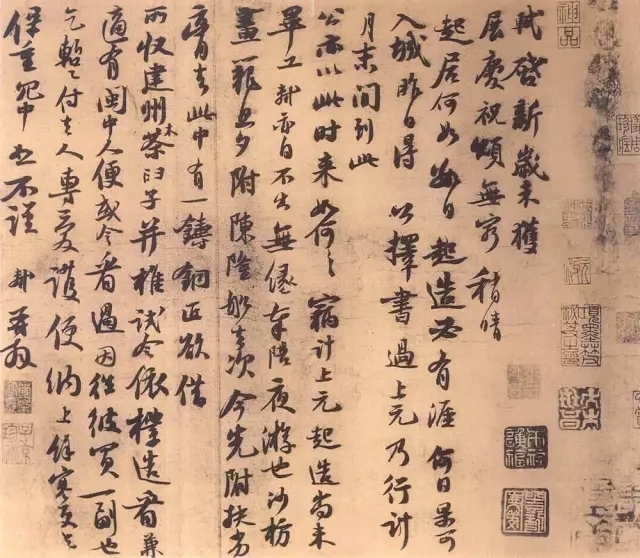 軾啓新歲未獲
展慶祝頌無窮稍晴
起居何如數日起造必有涯何日果可
入城昨日得公擇書過上元乃行計
月末間到此
公亦以此時來如何々竊計上元起造尚未
畢工軾亦自不出無緣奉陪夜游也沙枋
畫籠旦夕附陳隆船去次今先附扶劣
膏去此中有一鑄銅匠欲借
所收建州木茶臼子并椎試令依樣造看兼
適有閩中人便或令看過因往彼買一副也
乞暫付去人專愛護便納上餘寒更乞
保重冗中恕不謹軾再拜
神品